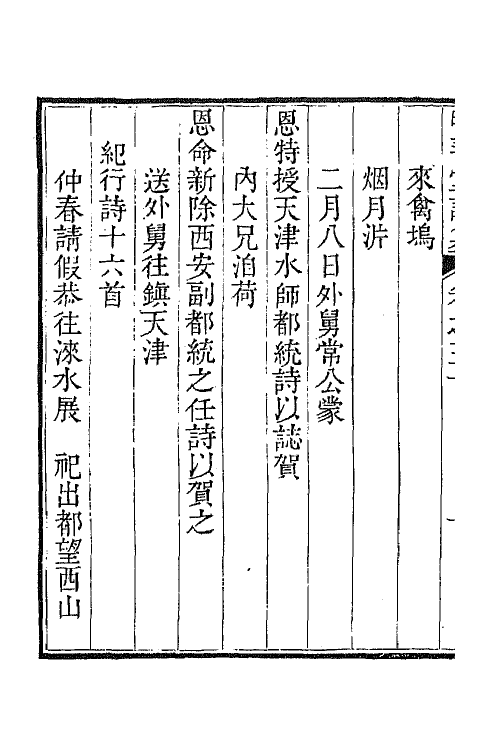 來禽塢
烟月泋
二月八日外舅常公蒙
恩特授天津水師都統詩以誌賀
內大兄泊荷
恩命新除西安副都統之任詩以賀之
送外舅往鎮天津
紀行詩十六首
仲春請假恭往淶水展　祀出都望西山